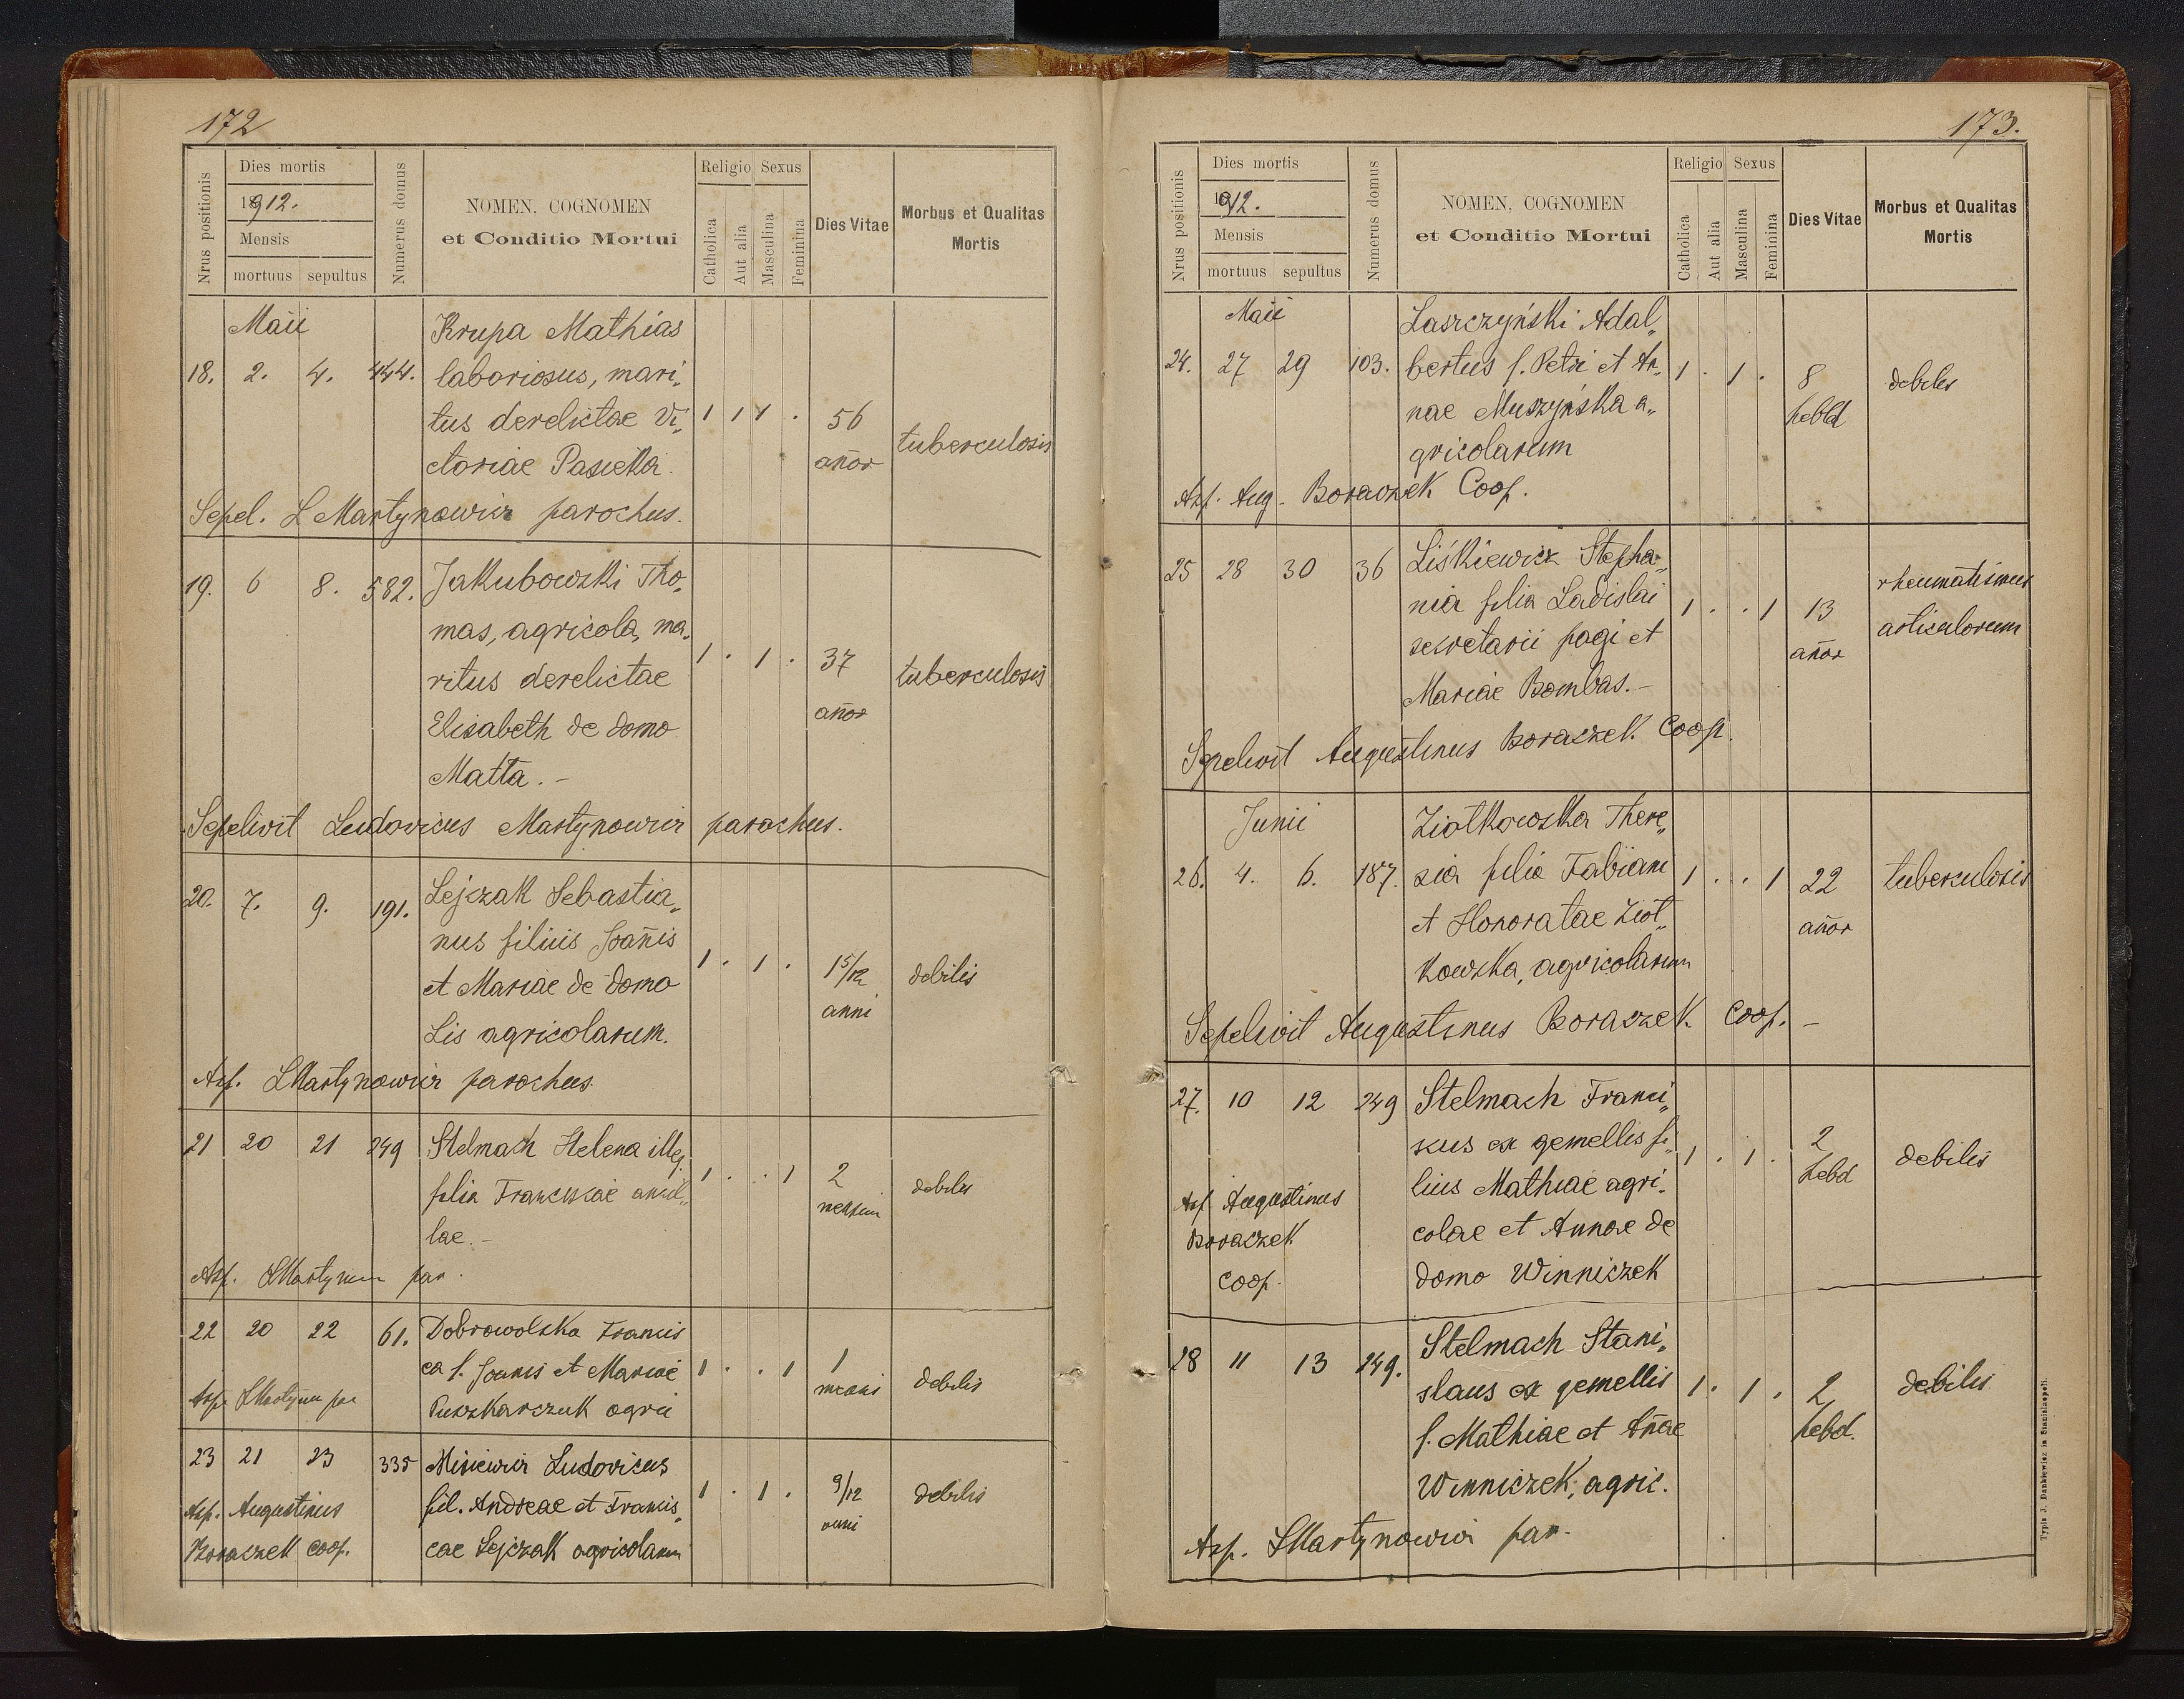 172
Nrus positionis
Dies mortis
1912.
Mensis
mortuus sepultus
Numerus domus
NOMEN, COGNOMEN
et Conditio Mortui
Religio Sexus
Catholica
Aut alia
Masculina
Feminina
Dies Vitae
Morbus et Qualitas
Mortis
Maii Krupa Mathias
18. 2. 4. 444. laboriosus, mari„
tus derelictae Vi„ 1 1 1 . 56
ctoriae tuberculosis
añor
Sepel. L Martynowicz parochus.
19. 6 8. 582. Jakubowski Tho„
mas, agricola, ma„
ritus derelictae 1 . 1 . 37 tuberculosis
Elisabeth de domo añor
Matta. –
Sepelivit Ludovicus Martynowicz parochus.
20. 7. 9. 191. Lejczak Sebastia„
nus filius Joañis
et Mariae de domo 1 . 1 . 1 5/12 debilis
Lis agricolarum. anni
Asp. LMartynowicz parochus
21 20 21 249 Stelmach Helena illeg.
filia Franciscae ancil„ 1 . . 1 2 debilis
lae. – mensium
Asp. LMartynow par.
22 20 22 61. Dobrowolska Francis
ca f. Joanis et Mariae 1 . . 1 1 debilis
Asp. LMartynow par Puszkarczuk agric mensis
23 21 23 335 Misiewicz Ludovicus
Asp. Augustinus fil. Andreae et Francis„ 1 . 1 . 9/12 debilis
Boraczek coop. cae Lejczak agricolarum anni
173.
Nrus positionis
Dies mortis
1912.
Mensis
mortuus sepultus
Numerus domus
NOMEN, COGNOMEN
et Conditio Mortui
Religio Sexus
Catholica
Aut alia
Masculina
Feminina
Dies Vitae
Morbus et Qualitas
Mortis
Maii Laszczyński Adal„
24. 27 29 103. bertus f. Petri et An„ 1 . 1 . 8 debilis
nae Muszyńska a„ hebd
gricolarum
Asp. Aug. Boraczek Coop.
25 28 30 36 Liśkiewicz Stepha„
nia filia Ladislai 1 . . 1 13 rheumatismus
secretarii pagi et añor articulorum
Mariae Bombas. –
Sepelivit Augustinus Boraczek Coop.
Junii Ziółkowska There„
26. 4. 6. 187. sia filia Fabiani 1 . . 1 22 tuberculosis
et Honoratae Ziół„ añor
kowska, agricolarum
Sepelivit Augustinus Boraczek Coop. –
27. 10 12 249 Stelmach Franci„
scus ex gemellis fi„ 1 . 1 . 2 debilis
Asp. Augustinus lius Mathiae agri„ hebd
Boraczek colae et Annae de
Coop. domo Winniczek
28 11 13 249. Stelmach Stani„
slaus ex gemellis 1 . 1 . 2 debilis
f. Mathiae et Añae hebd.
Winniczek, agric.
Asp. LMartynowicz par.
Typis J. Dankiewicz in Stanislaopoli.